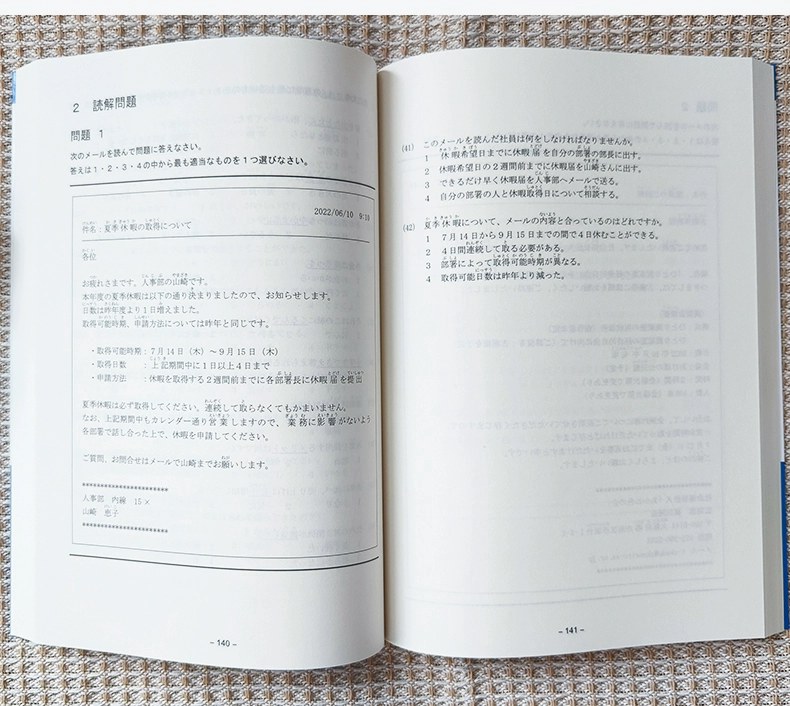 2 読解問題
問題 1
次のメールを読んで問題に答えなさい。
答えは1・2・3・4の中から最も適当なものを1つ選びなさい。
2022/06/10 9:10
件名：夏季休暇の取得について
各位
お疲れさまです。人事部の山崎です。
本年度の夏季休暇は以下の通り決まりましたので、お知らせします。
日数は昨年度より1日増えました。
取得可能時期、申請方法については昨年と同じです。
・取得可能時期：7月14日（木）～9月15日（木）
・取得日数 ：上記期間中に1日以上4日まで
・申請方法 ：休暇を取得する2週間前までに各部署長に休暇届を提出
夏季休暇は必ず取得してください。連続して取らなくてもかまいません。
なお、上記期間中もカレンダー通り営業しますので、業務に影響がないよう
各部署で話し合った上で、休暇を申請してください。
ご質問、お問合せはメールで山崎までお願いします。
人事部 内線 15×
山崎 恵子
－140－
(41) このメールを読んだ社員は何をしなければなりませんか。
1 休暇希望日までに休暇届を自分の部署の部長に出す。
2 休暇希望日の2週間前までに休暇届を山崎さんに出す。
3 できるだけ早く休暇届を人事部へメールで送る。
4 自分の部署の人と休暇取得日について相談する。
(42) 夏季休暇について、メールの内容と合っているのはどれですか。
1 7月14日から9月15日までの間で4日休むことができる。
2 4日間連続して取る必要がある。
3 部署によって取得可能時期が異なる。
4 取得可能日数は昨年より減った。
－141－